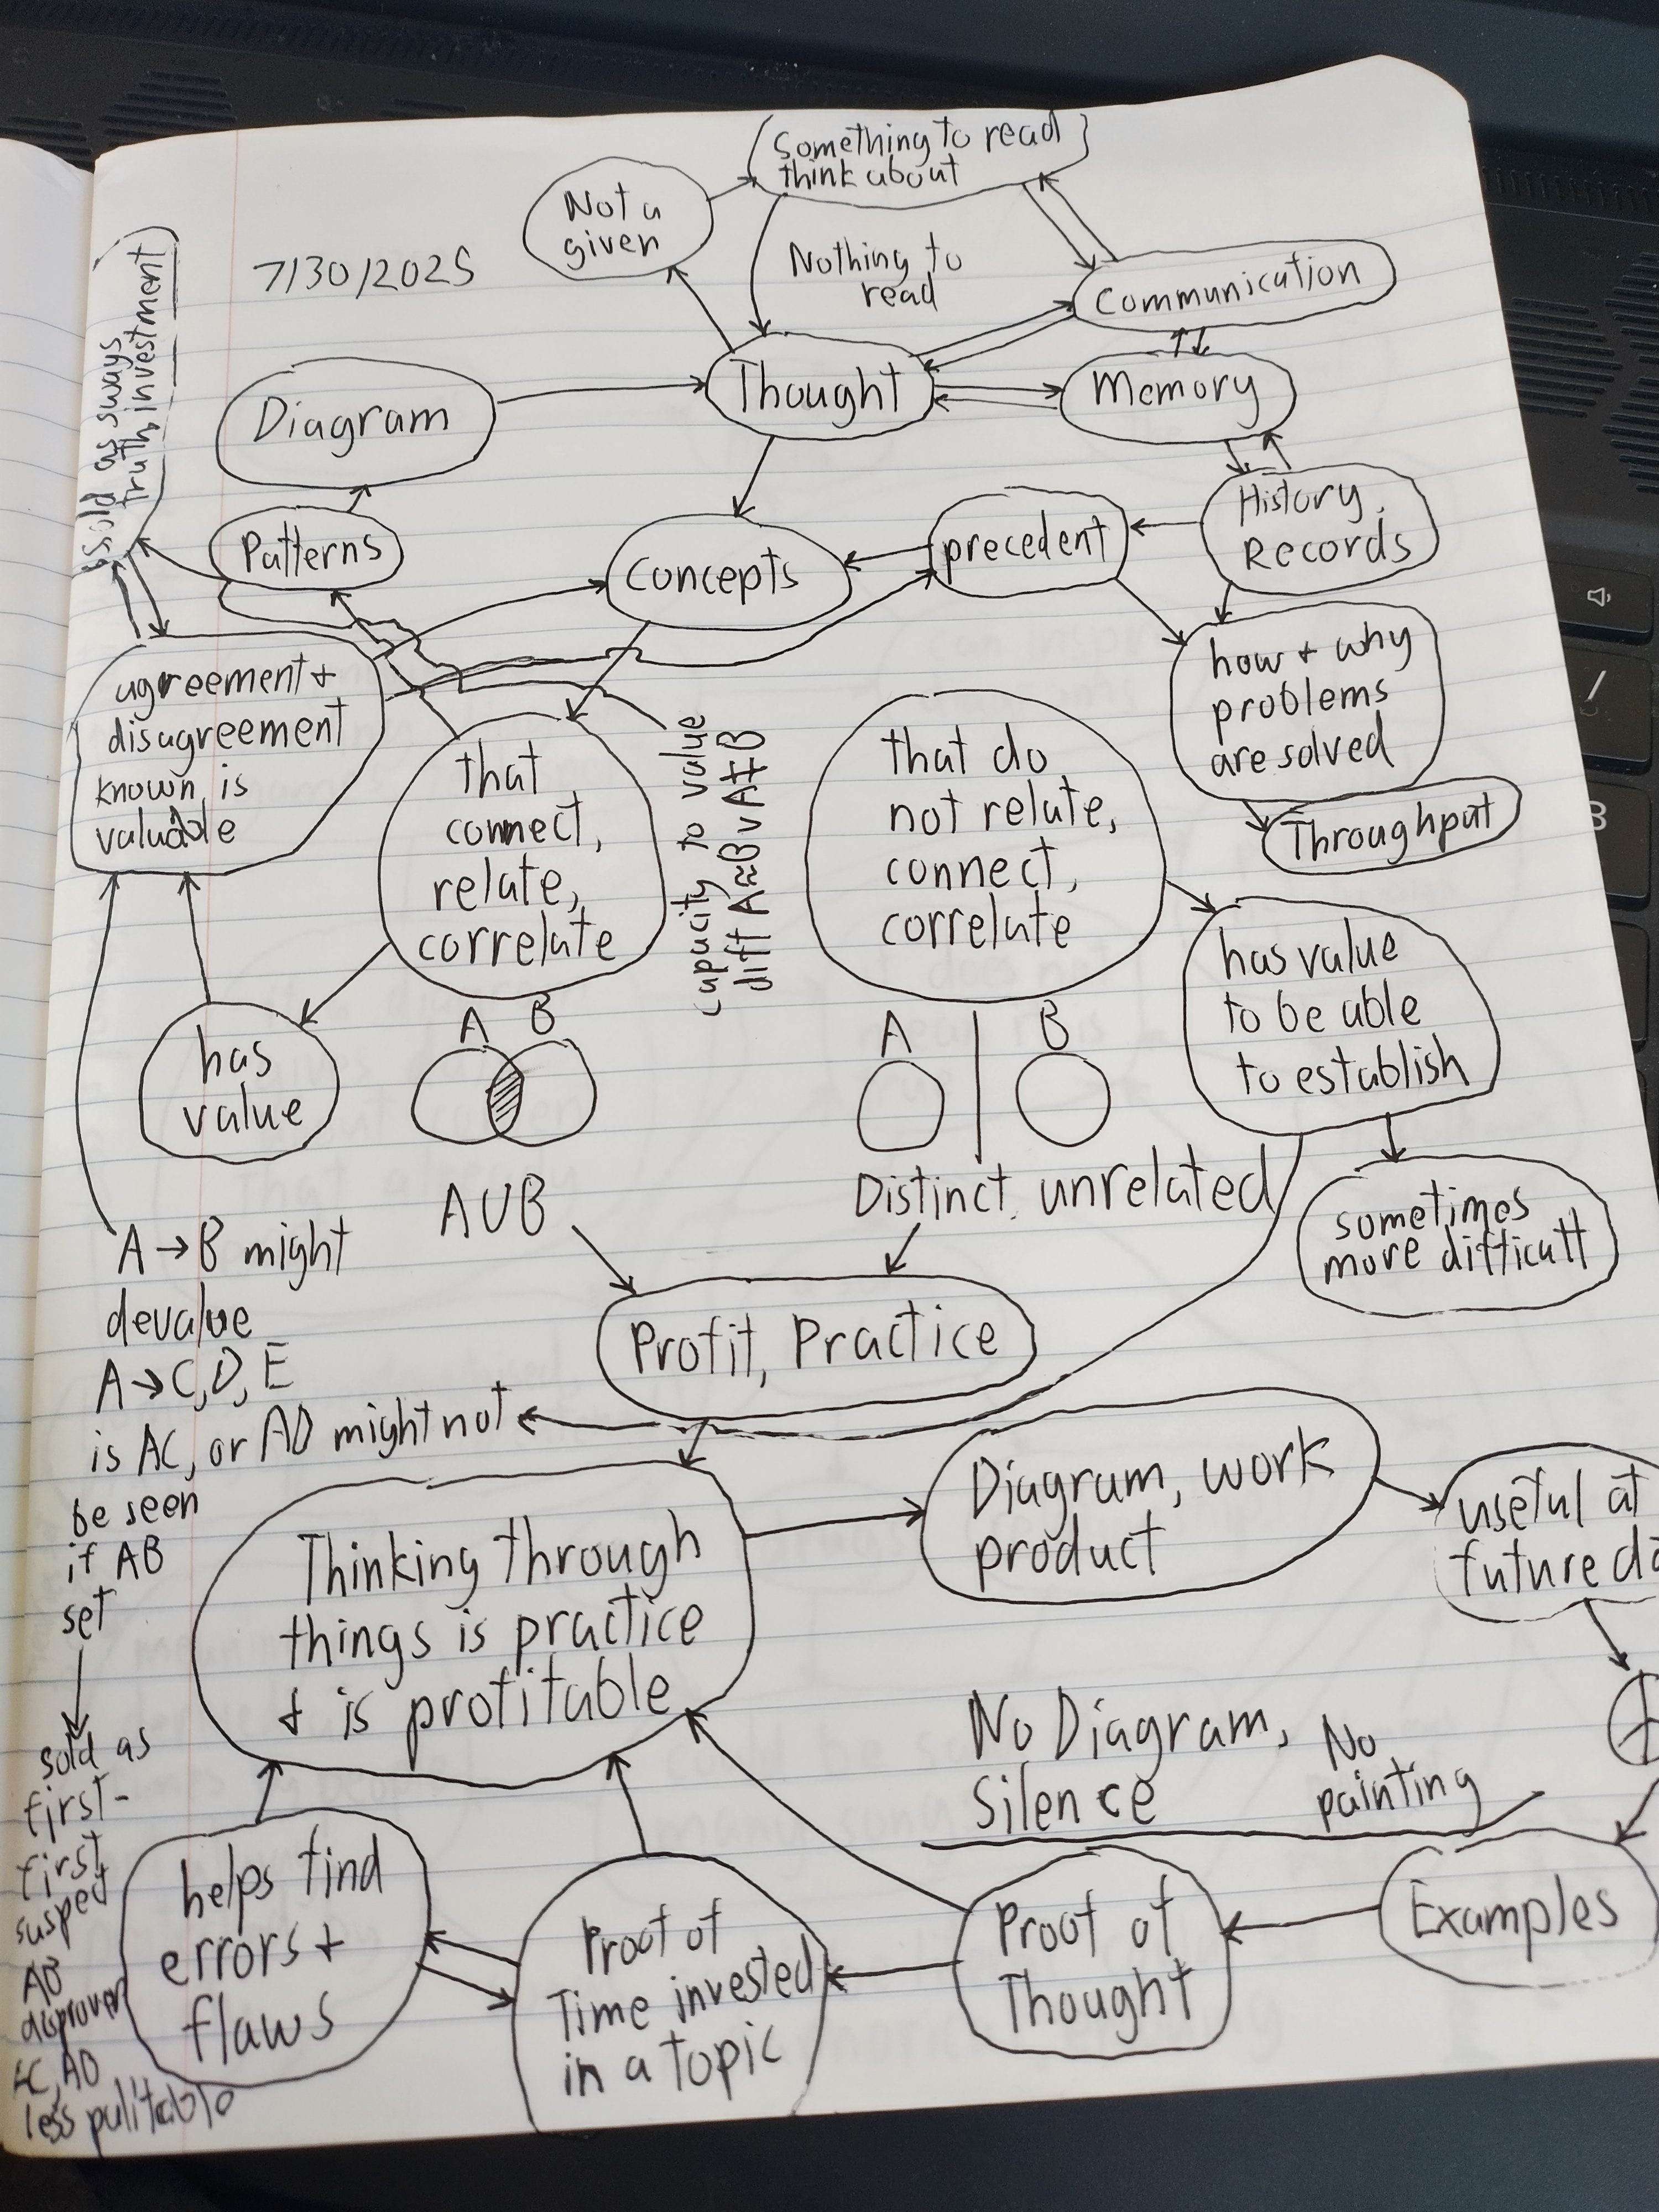 Something to read
think about
Not a
given
7/30/2025
Nothing to
read
Communication
sold as sways
truth, investment
Diagram
Thought
Memory
Patterns
Concepts
precedent
History,
Records
agreement +
disagreement
known is
valuable
that
connect,
relate,
correlate
capacity to value
diff A≈B v A≠B
that do
not relate,
connect,
correlate
how + why
problems
are solved
Throughput
has value
to be able
to establish
has
value
A B
A B
A∪B
Distinct, unrelated
sometimes
more difficult
A → B might
devalue
A → C, D, E
is AC, or AD might not
be seen
if AB
set
Profit, Practice
Thinking through
things is practice
+ is profitable
Diagram, work
product
useful at
future
No Diagram,
Silence
No
painting
sold as
first-
first
suspect
AB
AC, AD
less
helps find
errors +
flaws
Proof of
Time invested
in a topic
Proof of
Thought
Examples